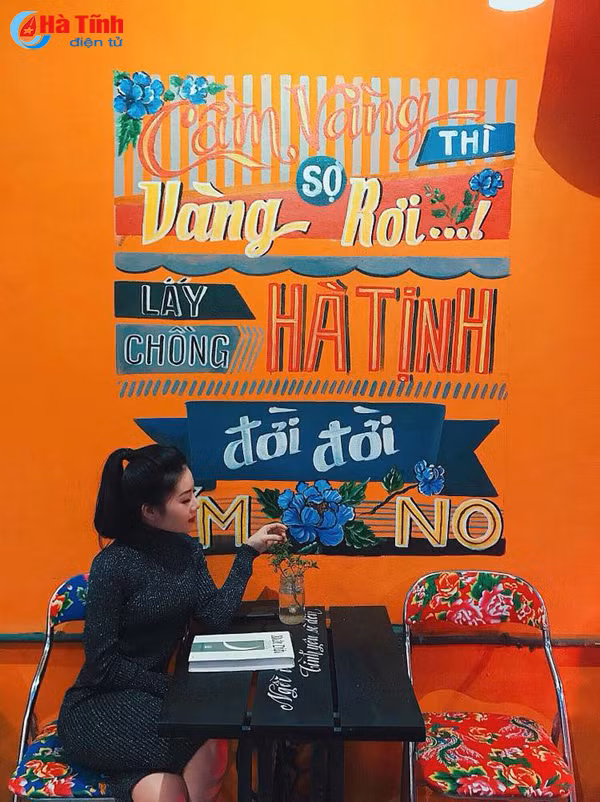 Hà Tĩnh
điện tử
Cầm Vàng THÌ
SỢ
Vàng Rơi...!
LẤY
CHỒNG
HÀ TỊNH
đời đời
ẤM NO